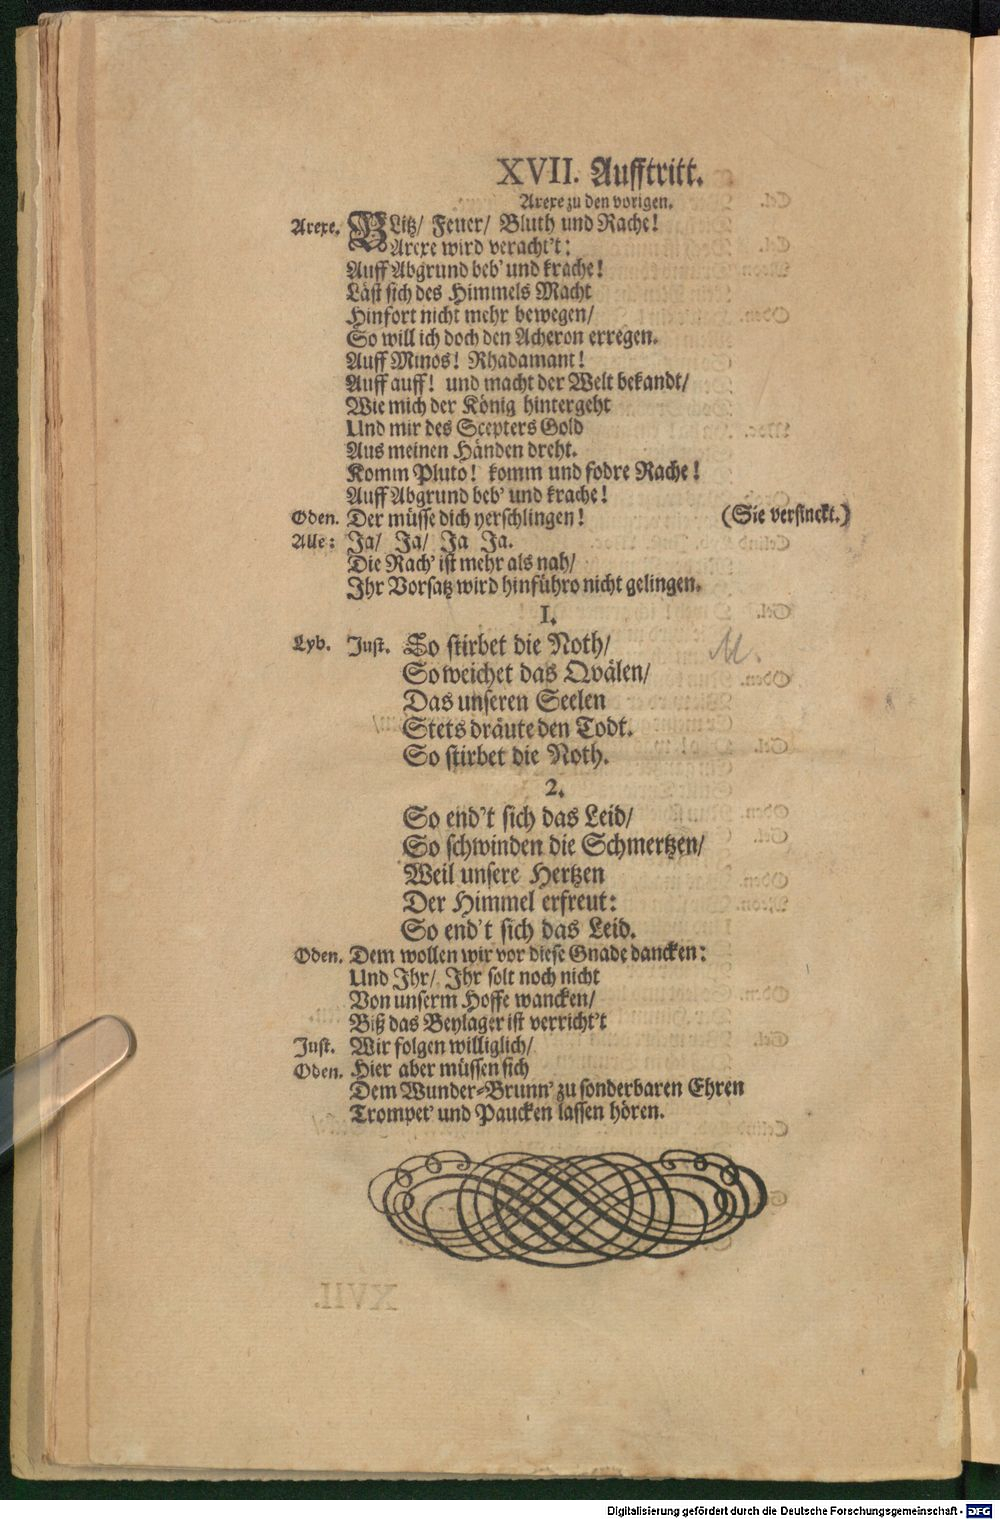 XVII. Aufftritt.
Arexe zu den vorigen.
Arexe. BLitz/ Feuer/ Bluth und Rache!
Arexe wird veracht't:
Auff Abgrund beb' und krache!
Läst sich des Himmels Macht
Hinfort nicht mehr bewegen/
So will ich doch den Acheron erregen.
Auff Minos! Rhadamant!
Auff auff! und macht der Welt bekandt/
Wie mich der König hintergeht
Und mir des Scepters Gold
Aus meinen Händen dreht.
Komm Pluto! komm und fodre Rache!
Auff Abgrund beb' und krache!
Oden. Der müsse dich verschlingen! (Sie versinckt.)
Alle: Ja/ Ja/ Ja Ja.
Die Rach' ist mehr als nah/
Ihr Vorsatz wird hinführo nicht gelingen.
1.
Lyb. Just. So stirbet die Noth/
So weichet das Qvälen/
Das unseren Seelen
Stets dräute den Todt.
So stirbet die Noth.
2.
So end't sich das Leid/
So schwinden die Schmertzen/
Weil unsere Hertzen
Der Himmel erfreut:
So end't sich das Leid.
Oden. Dem wollen wir vor diese Gnade dancken:
Und Ihr/ Ihr solt noch nicht
Von unserm Hoffe wancken/
Biß das Beylager ist verricht't
Just. Wir folgen williglich/
Oden. Hier aber müssen sich
Dem Wunder-Brunn' zu sonderbaren Ehren
Trompet' und Paucken lassen hören.
Digitalisierung gefördert durch die Deutsche Forschungsgemeinschaft - DFG